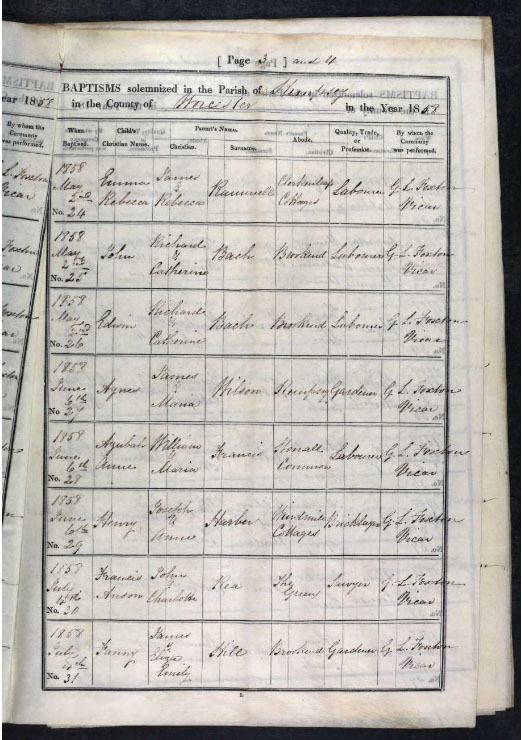 [ Page 3 ] and 4
BAPTISMS solemnized in the Parish of Kempsey
in the County of Worcester in the Year 1858
ear 1858
When Baptised.
Child's Christian Name.
Parent's Name.
Christian.
Surname.
Abode.
Quality, Trade, or Profession.
By whom the Ceremony was performed.
By whom the
Ceremony
was performed.
L. Foxton
Vicar
1858 James
May Emma & Labourer G. L. Foxton
2nd Rebecca Rebecca Cottages Vicar
No. 24
1858 Richard
May John & Bach Brookend Labourer G. L. Foxton
2nd Catherine Vicar
No. 25
1858 Richard
May Edwin & Bach Brookend Labourer G. L. Foxton
2nd Catherine Vicar
No. 26
1858 James
June Agnes & Wilson Kempsey Gardener G. L. Foxton
6th Maria Vicar
No. 27
1858 Azubah William
June Anne & Francis Stonall Labourer G. L. Foxton
6th Maria Common Vicar
No. 28
1858 Joseph
June Henry & Harber Windmill Bricklayer G. L. Foxton
6th Anne Cottages Vicar
No. 29
1858 Francis John
July Anson & Rea The Sawyer G. L. Foxton
4th Charlotte Green Vicar
No. 30
1858 James
July Fanny & Hill Brookend Gardener G. L. Foxton
4th Eliza Vicar
No. 31 Emily